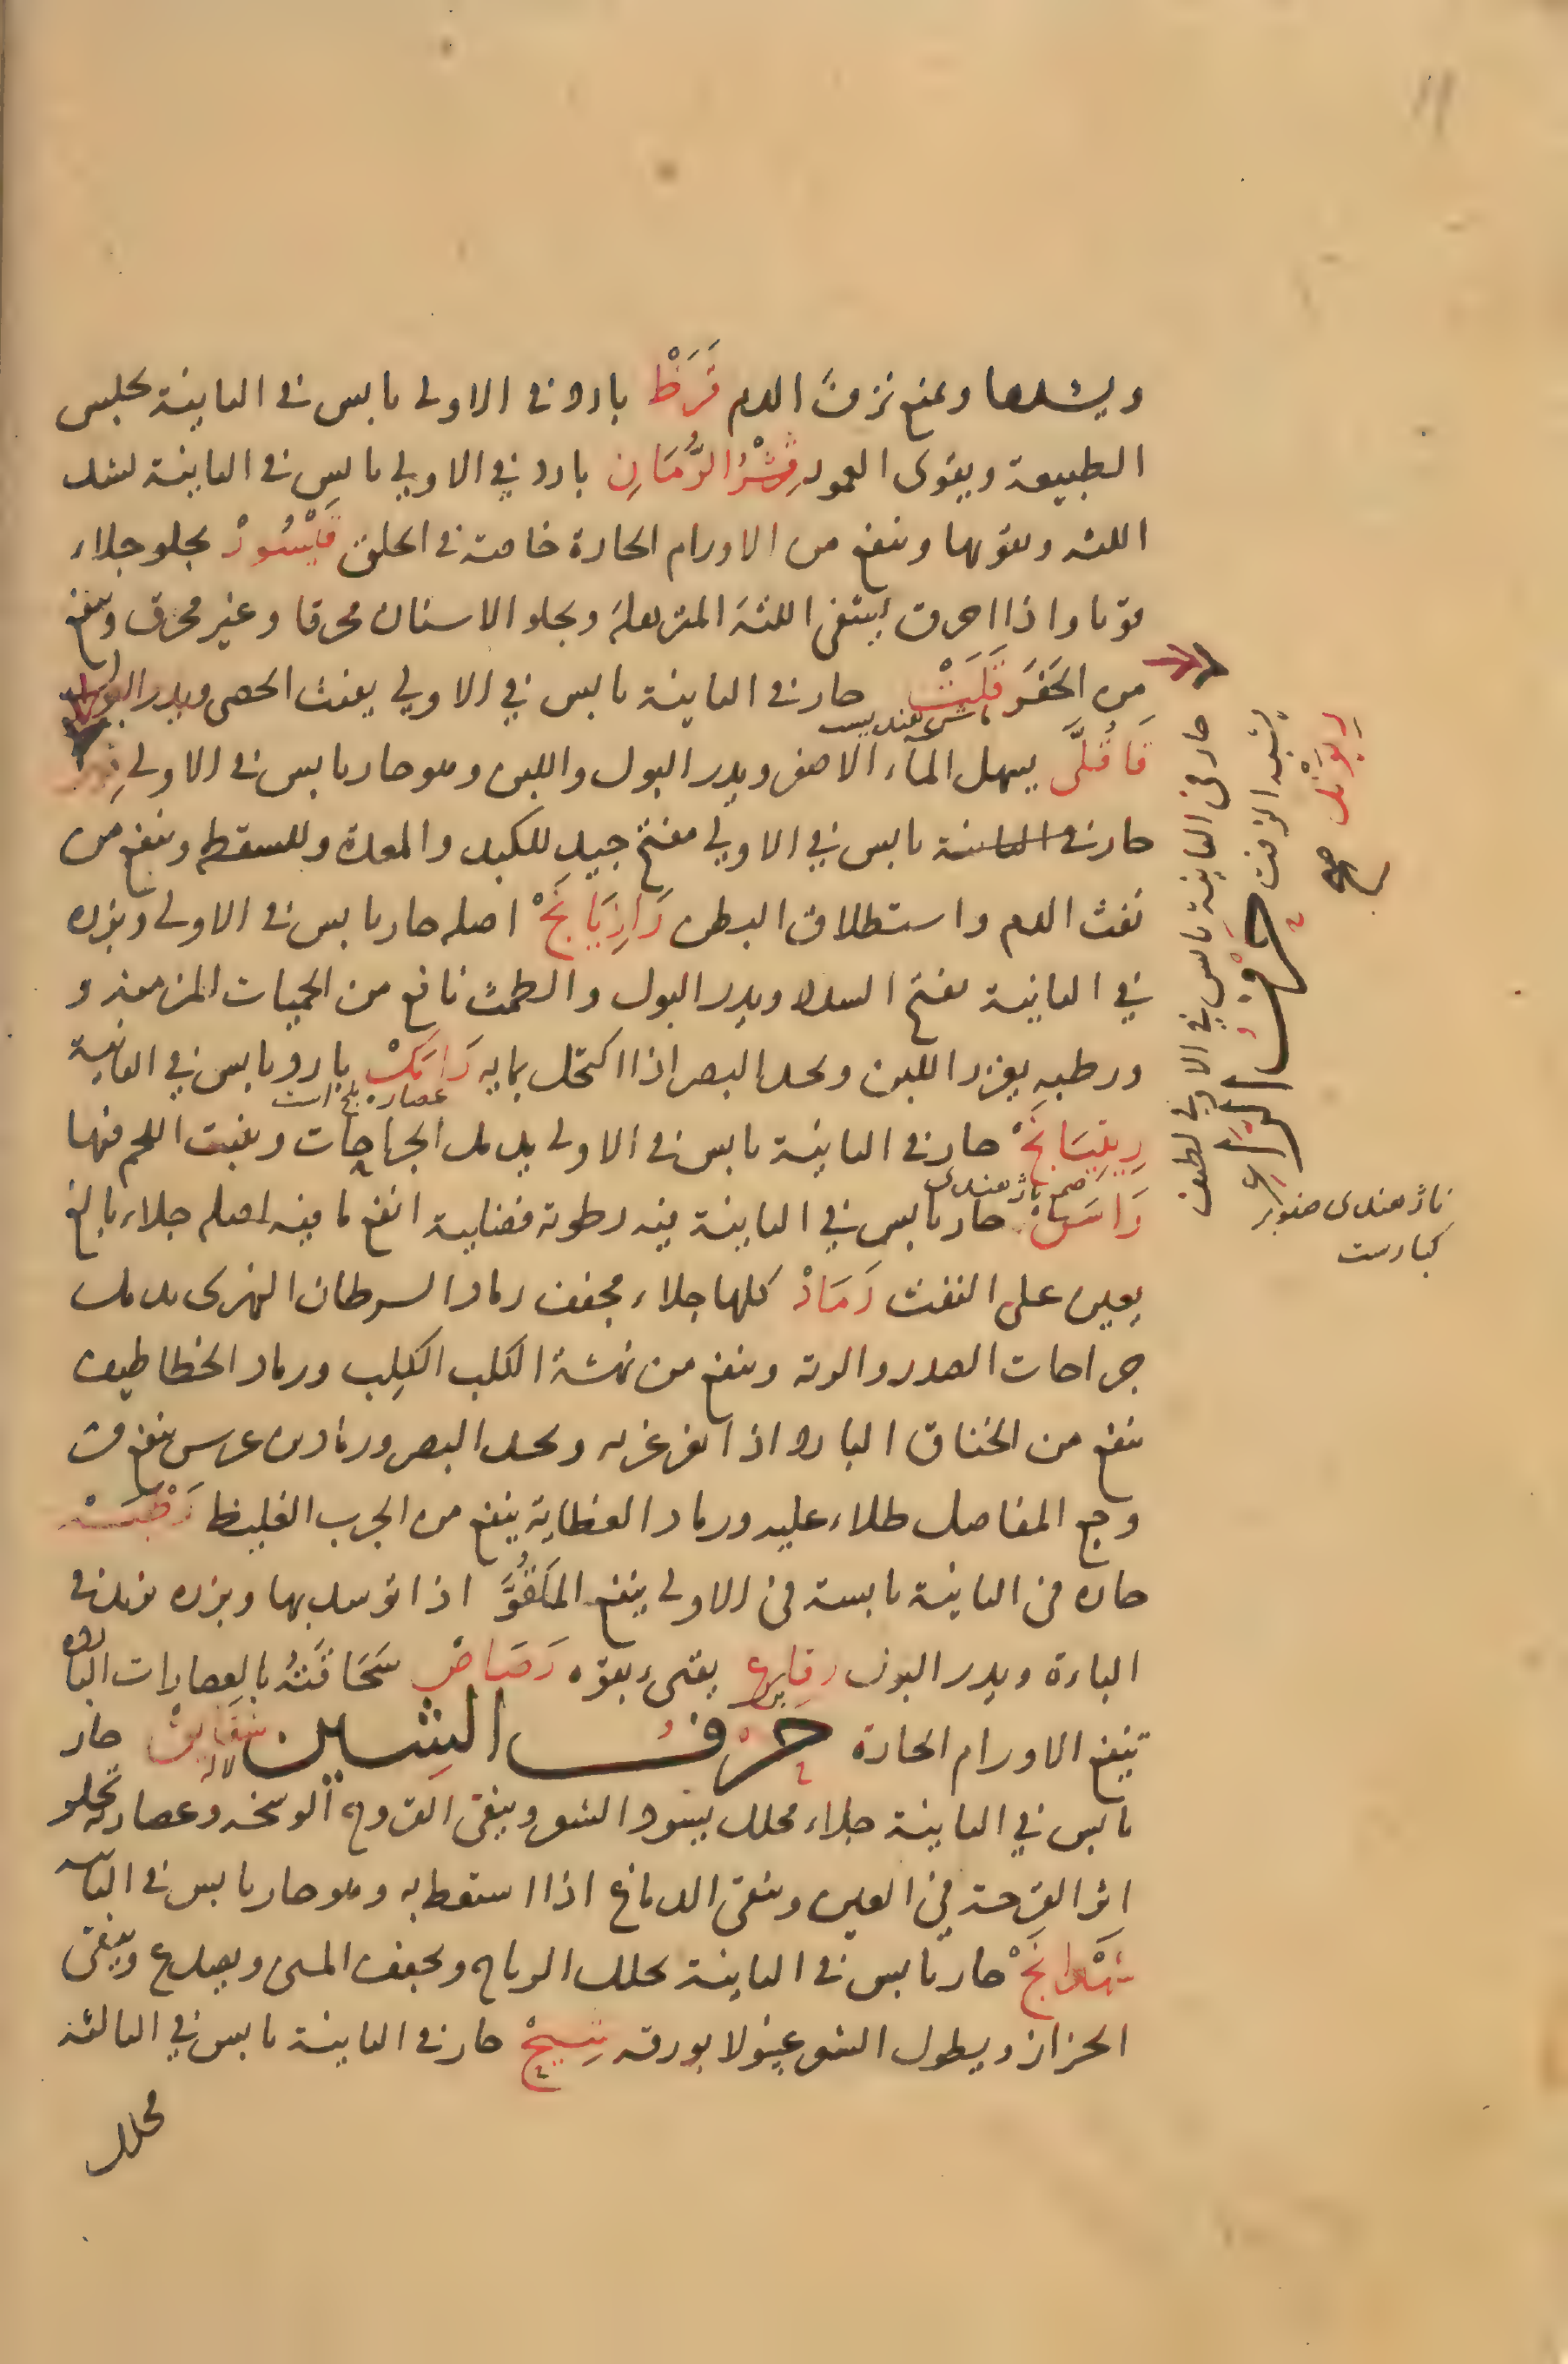 ويشدها ويمنع نزف الدم قَرَظْ بارد في الاولى يابس في الثانية يحبس
الطبيعة ويقوى المعدة قِشْرُ الرُّمَانِ بارد في الاولى يابس في الثانية يشد
اللثه ويقويها وينفع من الاورام الحادة خاصة في الحلق قَيْسُورْ يجلو جلاء
قويا واذا احرق ينقى اللثة المترهلة ويجلو الاسنان محرقا وغير محرق وينفع
من الحَفَر قُلَتْ حار في الثانية يابس في الاولى يفتت الحصى ويدر البول
ماش هنديست
قَاقُلَّى يسهل الماء الاصفر ويدر البول واللبن وهو حار يابس في الاولى
حار في الثانية يابس في الاولى مفتح جيد للكبد والمعدة وللسقطه وينفع من
نفث الدم واستطلاق البطن رَازِيَانَجْ اصله حار يابس في الاولى وبزره
في الثانية يفتح السدد ويدر البول والطمث نافع من الحميات المزمنه و
ورطبه يغزر اللبن ويحد البصر اذا اكتحل بمايه رَامَكْ بارد يابس في الثانية
عصاره بلح است
رِيتِيَانَجْ حار في الثانية يابس في الاولى يدمل الجراحات وينبت اللحم فيها
صمغ ناژ هندى
رَاسَنْ حار يابس في الثانية فيه رطوبة فضلية انفع ما فيه اصله جلاء بالغ
يعين على النفث رَمَادْ كلها جلاء مجفف رماد السرطان النهرى يدمل
جراحات الصدر والرئه وينفع من نهشة الكلب الكَلِب ورماد الخطاطيف
ينفع من الخناق البارد اذا تغرغر به ويحد البصر ورماد بن عرس ينفع من
وجع المفاصل طلاء عليه ورماد العظاية ينفع من الجرب الغليظ رَطْبَتْ
حاره في الثانية يابسة في الاولى ينفع اذا توسل بها وبزره يزيد في
الباءة ويدر البول يقىء بقوه رَصَاصْ سَحَاقَتُهُ بالعصارات الباردة
تنفع الاورام الحارة حرف الشين شَقَايِقْ حار
لاله
يابس في الثانية جلاء محلل يسود الشعر وينقى القروح الوسخه وعصارته تجلو
اثر القرحة في العين وينقى الدماغ اذا استعط به وهو حار يابس في الثانيه
شَهْدَانَجْ حار يابس في الثانية يحلل الرياح ويجفف المنى ويصدع وينقى
الحزاز ويطول الشعر غسولا بورقه شِيحْ حار في الثانية يابس في الثالثة
محلل
رِيوَنْد
صح
يشبه الزفت حرف الراء
حار في الثانية يابس في الاولى لطيف
ناژ هندى صنوبر
كبارست